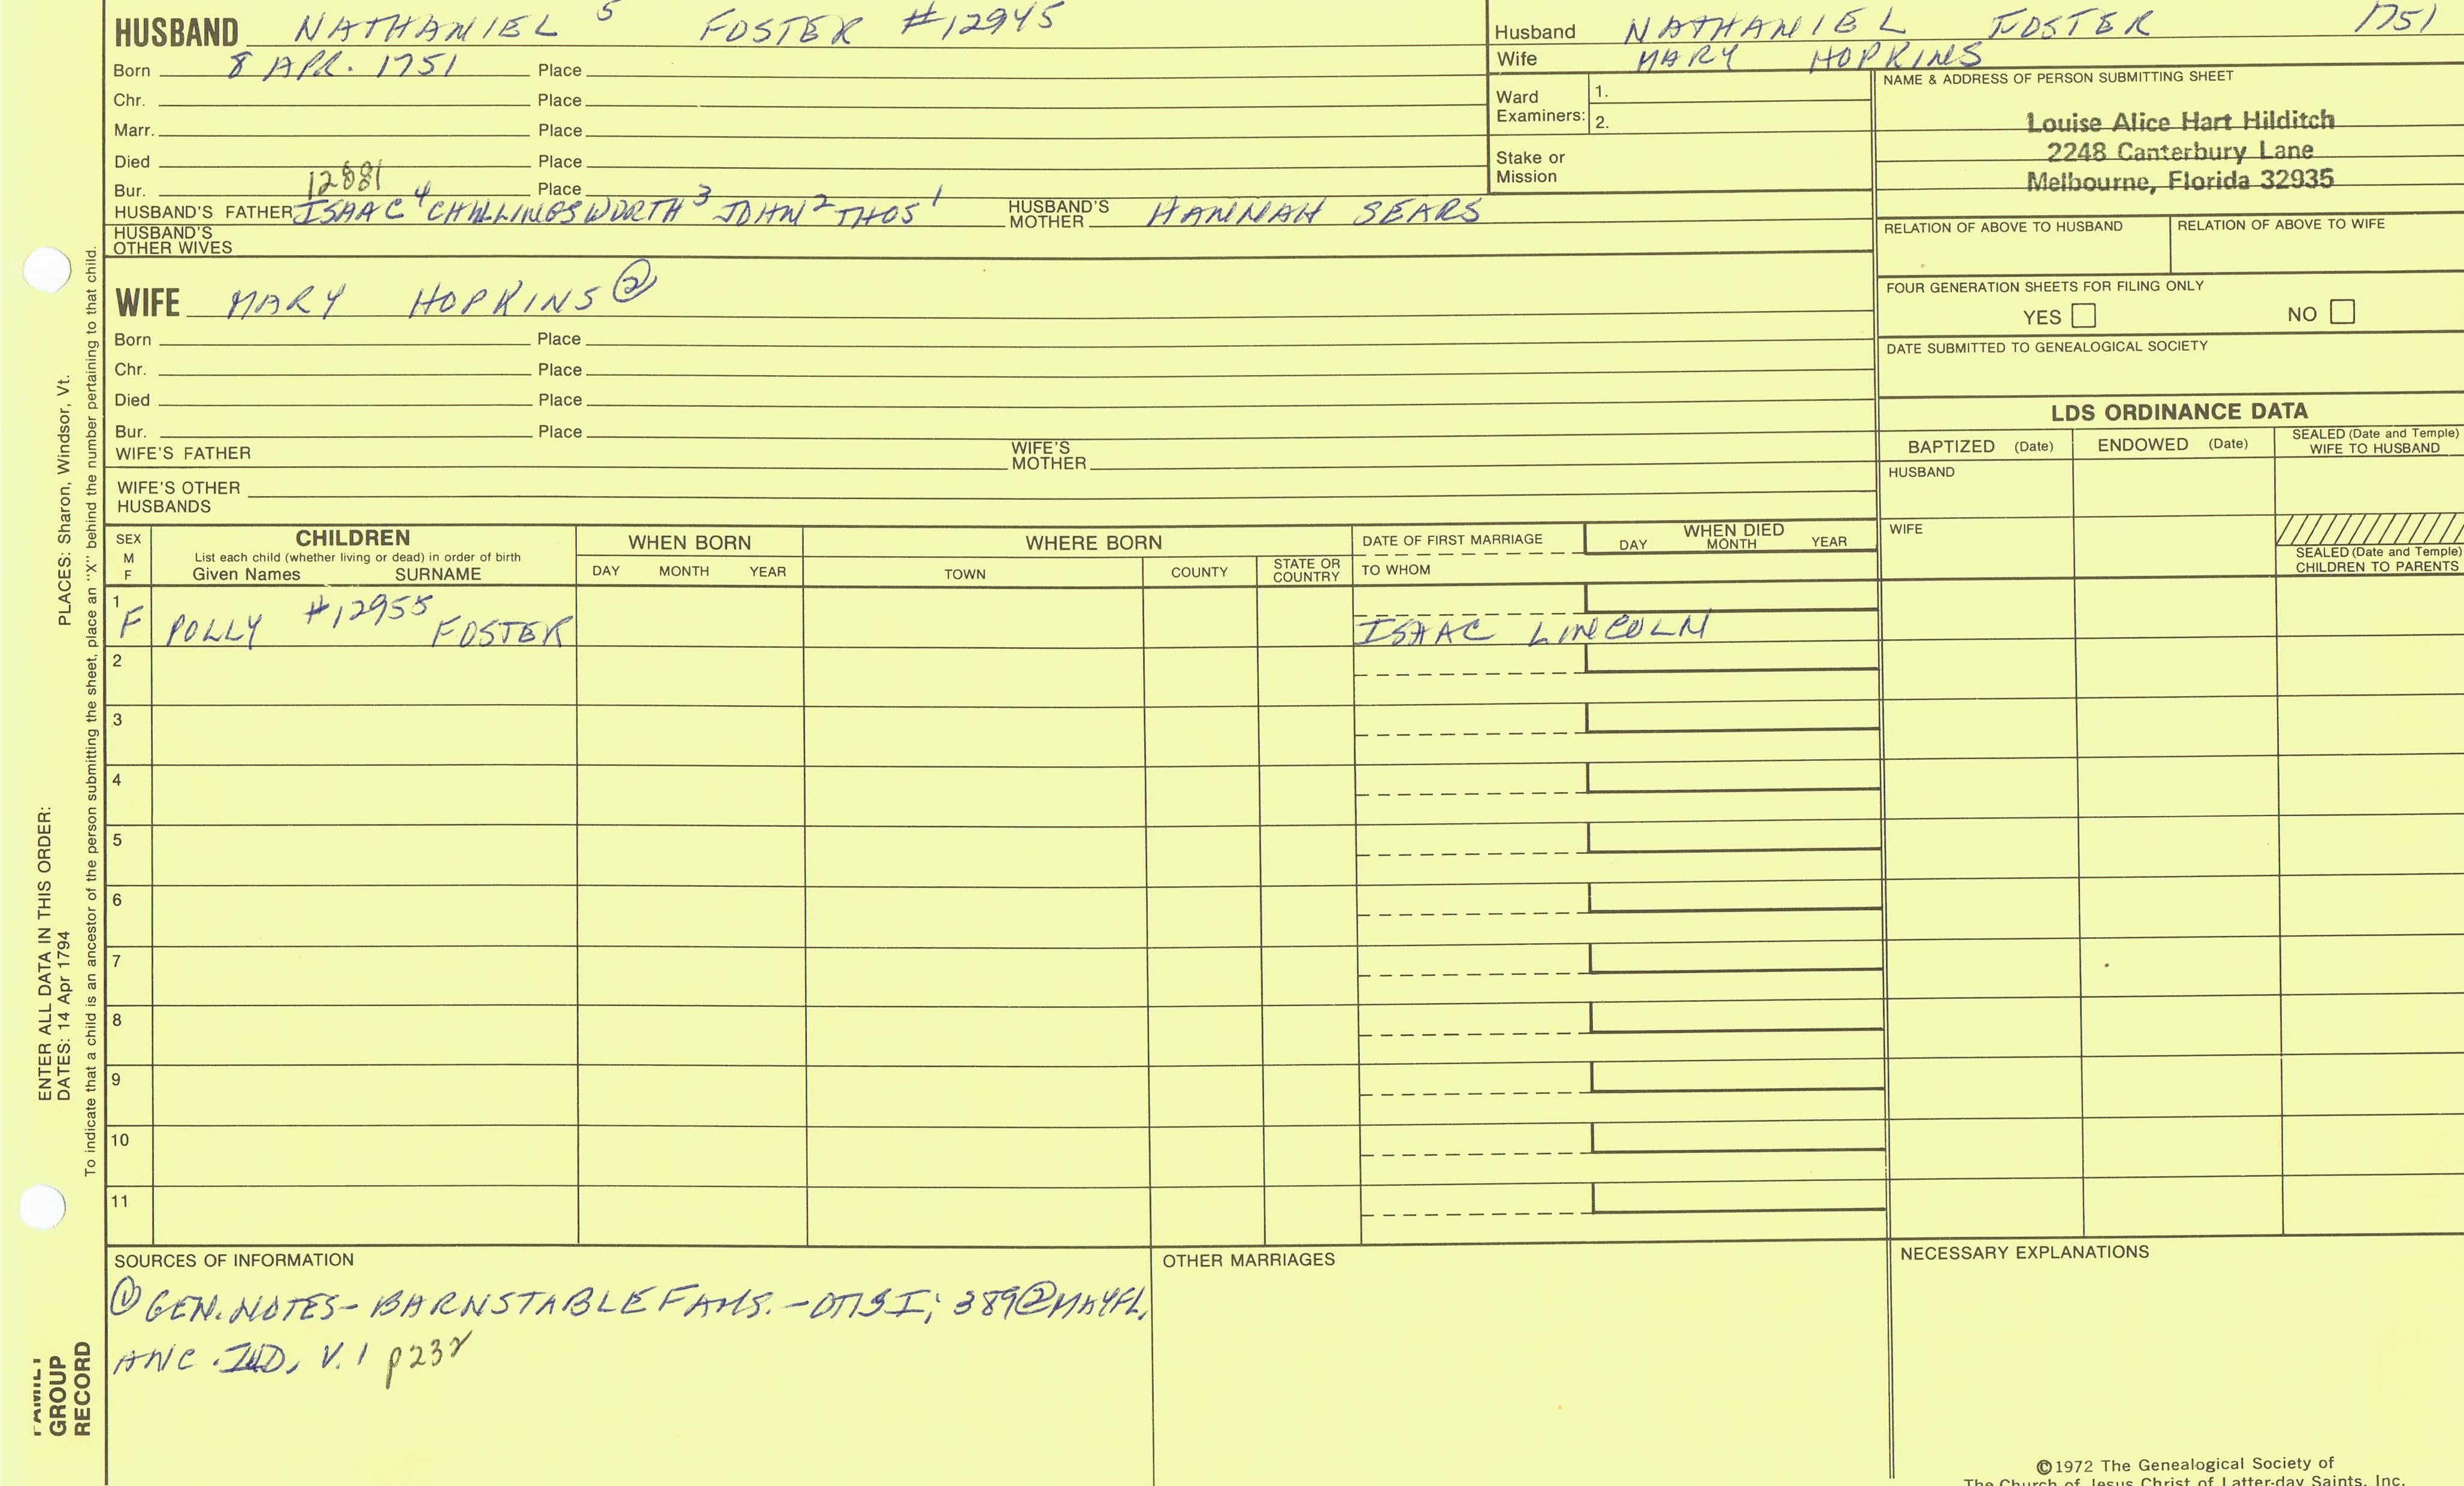 HUSBAND NATHANIEL 5 FOSTER #12945
Born 8 APR. 1751 Place
Chr. Place
Marr. Place
Died Place
12881
Bur. Place
HUSBAND'S FATHER ISAAC 4 CHILLINGSWORTH 3 JOHN 2 THOS 1 HUSBAND'S MOTHER HANNAH SEARS
HUSBAND'S OTHER WIVES
Husband NATHANIEL FOSTER 1751
Wife MARY HOPKINS
Ward Examiners: 1.
2.
Stake or Mission
NAME & ADDRESS OF PERSON SUBMITTING SHEET
Louise Alice Hart Hilditch
2248 Canterbury Lane
Melbourne, Florida 32935
RELATION OF ABOVE TO HUSBAND RELATION OF ABOVE TO WIFE
FOUR GENERATION SHEETS FOR FILING ONLY
YES NO
DATE SUBMITTED TO GENEALOGICAL SOCIETY
WIFE MARY HOPKINS ②
Born Place
Chr. Place
Died Place
Bur. Place
WIFE'S FATHER WIFE'S MOTHER
WIFE'S OTHER HUSBANDS
LDS ORDINANCE DATA
BAPTIZED (Date) ENDOWED (Date) SEALED (Date and Temple) WIFE TO HUSBAND
HUSBAND
WIFE
SEALED (Date and Temple) CHILDREN TO PARENTS
SEX M F
CHILDREN
List each child (whether living or dead) in order of birth
Given Names SURNAME
WHEN BORN
DAY MONTH YEAR
WHERE BORN
TOWN COUNTY STATE OR COUNTRY
DATE OF FIRST MARRIAGE
TO WHOM
WHEN DIED
DAY MONTH YEAR
1 F POLLY #12955 FOSTER ISAAC LINCOLN
2
3
4
5
6
7
8
9
10
11
SOURCES OF INFORMATION
① GEN. NOTES - BARNSTABLE FAMS. - OTIS I; 389 ② MAYFL,
ANC. IND, V. 1 p232
OTHER MARRIAGES
NECESSARY EXPLANATIONS
©1972 The Genealogical Society of
The Church of Jesus Christ of Latter-day Saints, Inc.
ENTER ALL DATA IN THIS ORDER:
DATES: 14 Apr 1794 PLACES: Sharon, Windsor, Vt.
To indicate that a child is an ancestor of the person submitting the sheet, place an "X" behind the number pertaining to that child.
FAMILY
GROUP
RECORD